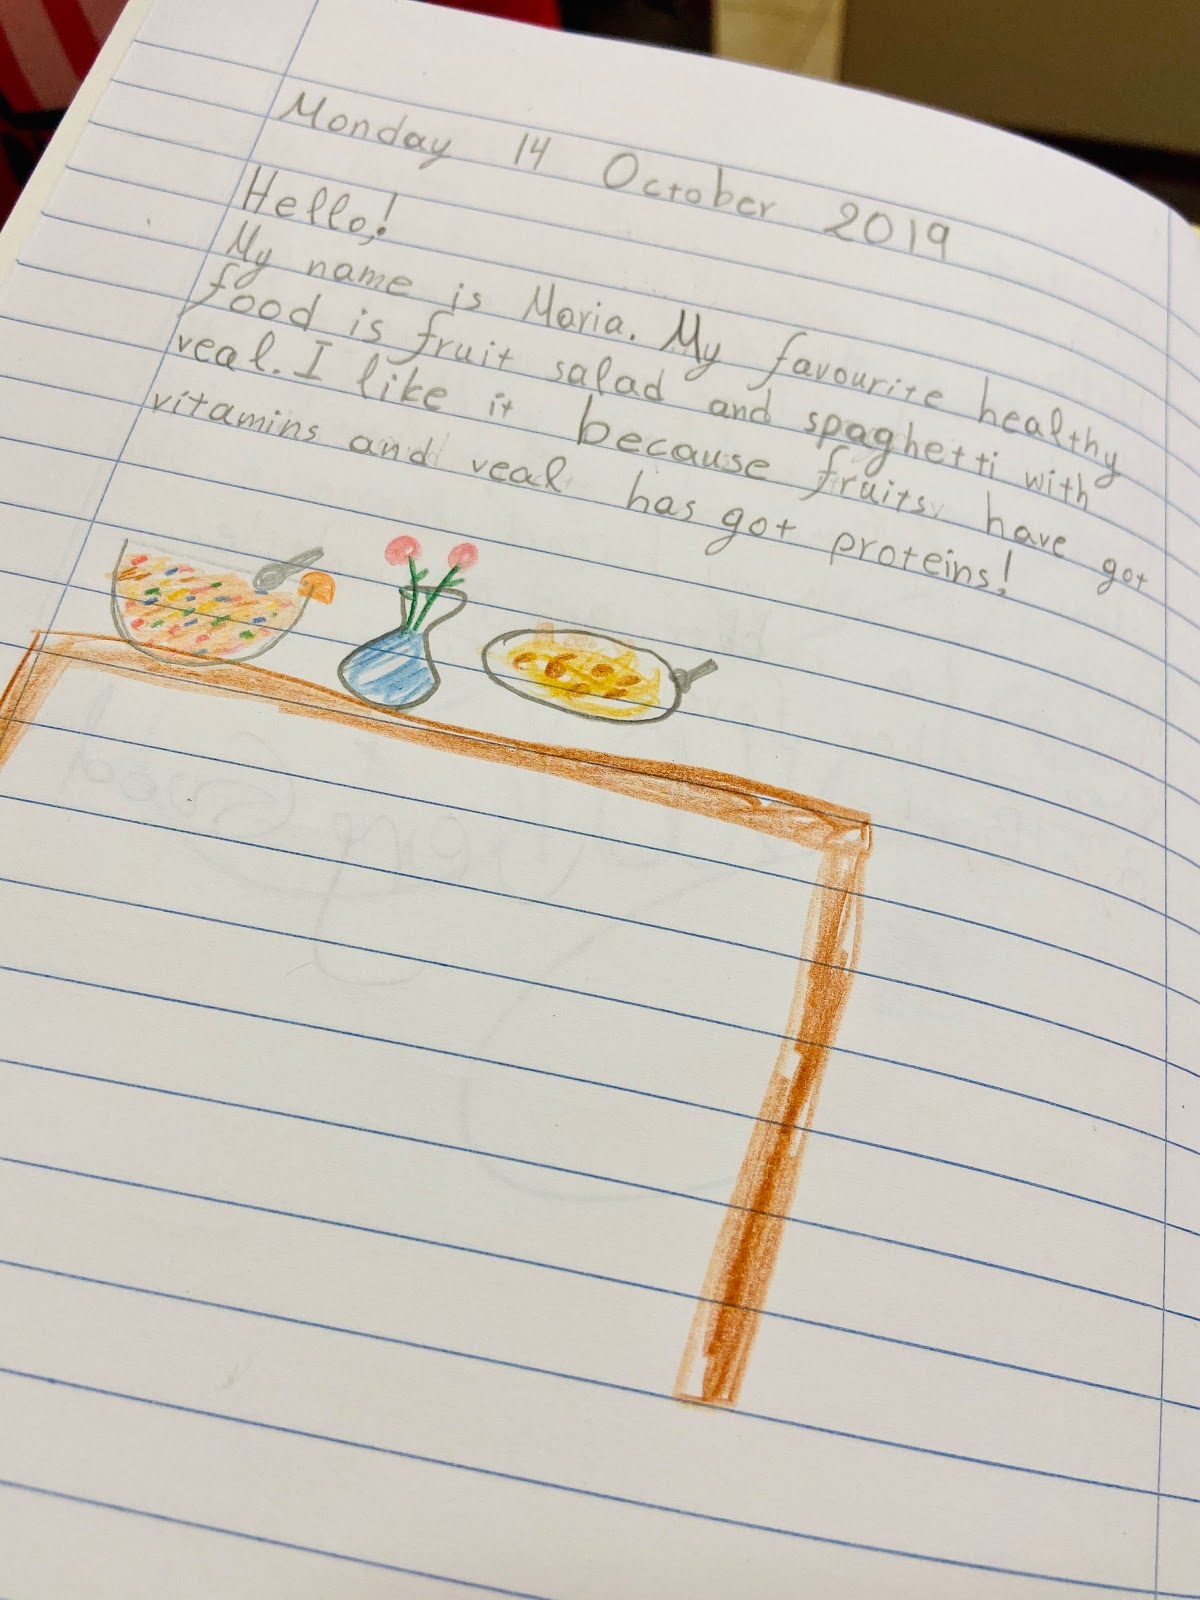 Monday 14 October 2019
Hello,!
My name is Maria. My favourite healthy
food is fruit salad and spaghetti with
veal. I like it because fruits have got
vitamins and veal has got proteins!